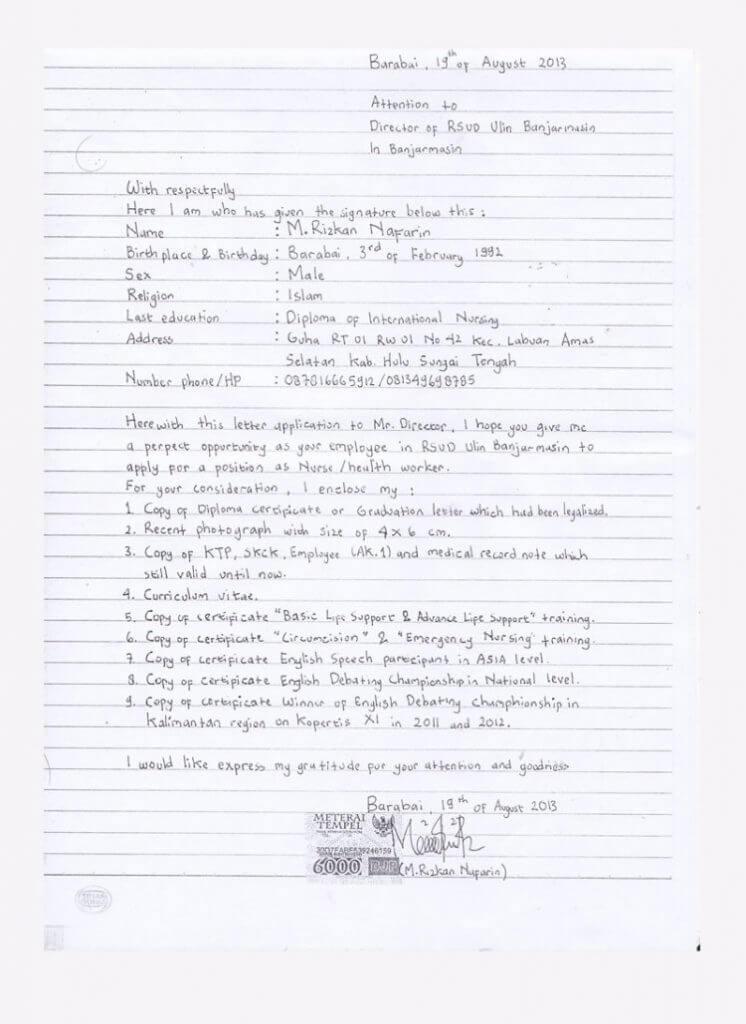 Barabai, 19th of August 2013
Attention to
Director of RSUD Ulin Banjarmasin
In Banjarmasin
With respectfully
Here I am who has given the signature below this :
Name : M. Rizkan Nafarin
Birth place & Birthday : Barabai, 3rd of February 1992
Sex : Male
Religion : Islam
Last education : Diploma of International Nursing
Address : Guha RT 01 RW 01 No 42 Kec. Labuan Amas
Selatan Kab. Hulu Sungai Tengah
Number phone/HP : 087816665912 /081349698785
Here with this letter application to Mr. Director, I hope you give me
a perfect opportunity as your employee in RSUD Ulin Banjarmasin to
apply for a position as Nurse /health worker.
For your consideration, I enclose my :
1. Copy of Diploma certificate or Graduation letter which had been legalized.
2. Recent photograph with size of 4 x 6 cm.
3. Copy of KTP, SKCK, Employee (AK.1) and medical record note which
still valid until now.
4. Curriculum vitae.
5. Copy of certificate "Basic Life Support & Advance Life Support" training.
6. Copy of certificate "Circumcision" & "Emergency Nursing" training.
7. Copy of certificate English Speech participant in ASIA level.
8. Copy of certificate English Debating Championship in National level.
9. Copy of certificate Winner of English Debating Champhionship in
Kalimantan region on Kopertis XI in 2011 and 2012.
I would like express my gratitude for your attention and goodness
Barabai, 19th of August 2013
METERAI
TEMPEL
6000 DJP
(M. Rizkan Nafarin)